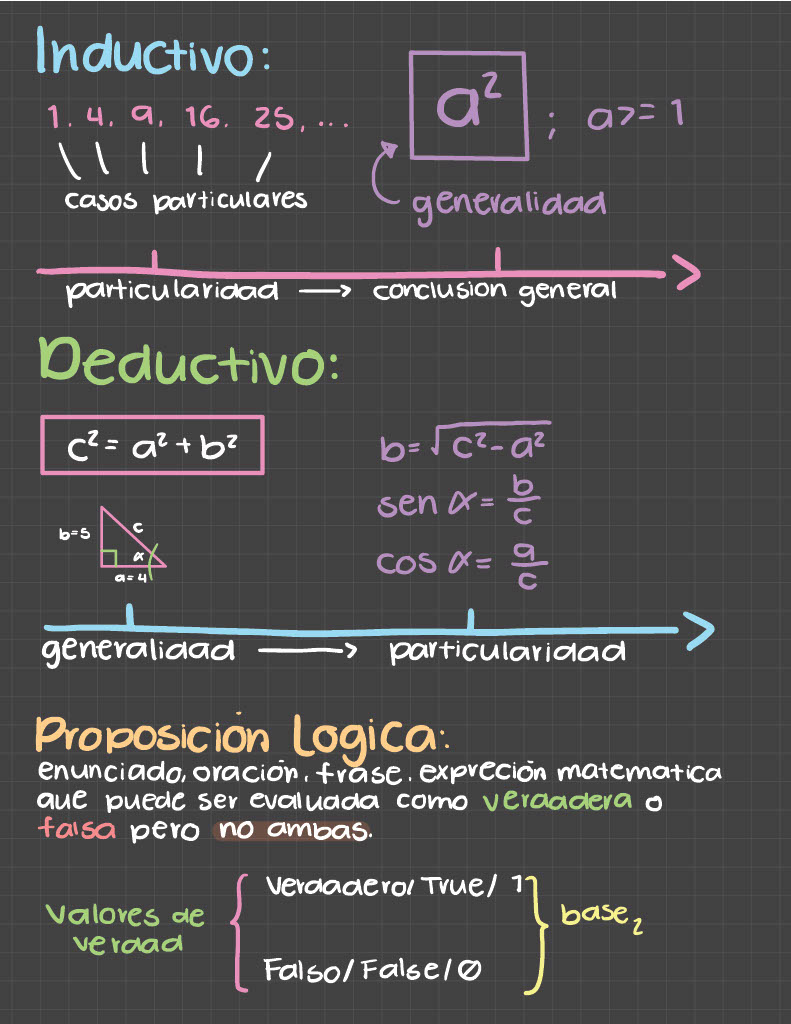 Inductivo:
1, 4, 9, 16, 25, ...
a² ; a>= 1
casos particulares
generalidad
particularidad → conclusion general
Deductivo:
c² = a² + b²
b= √c²-a²
sen α = b/c
b=5
c
α
a=4
cos α = a/c
generalidad → particularidad
Proposición Logica:
enunciado, oración, frase, expreción matematica
que puede ser evaluada como verdadera o
falsa pero no ambas.
Valores de
verdad
Verdadero/True/ 1
Falso/False/0
base₂